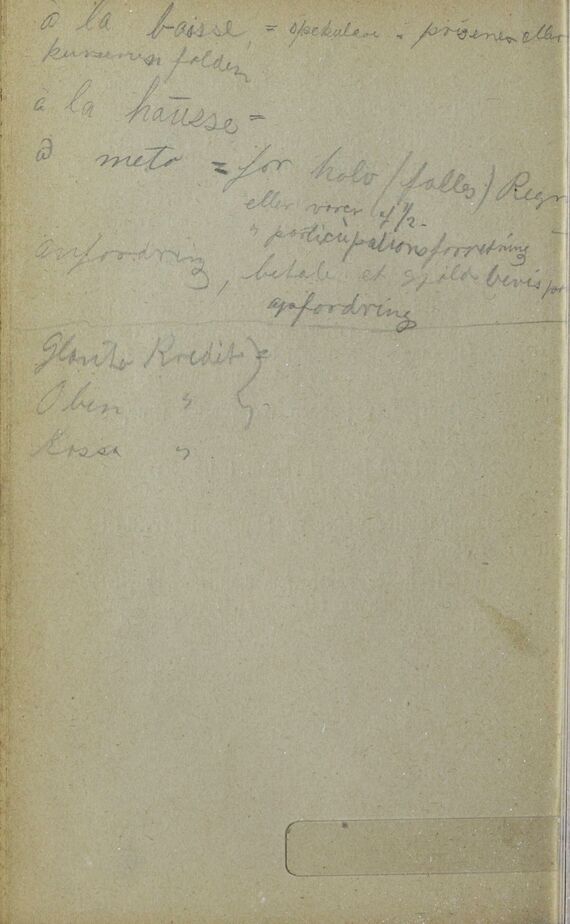 à la baisse, = spekulere i prisenes eller
kursernes falden
à la hausse =
a meta = for halv (fælles) Regn
eller varer af ½.
" participationsforretning
anfordring, betale et gjeldsbevis på
anfordring
Kredit } =
Oben " "
Kassa "